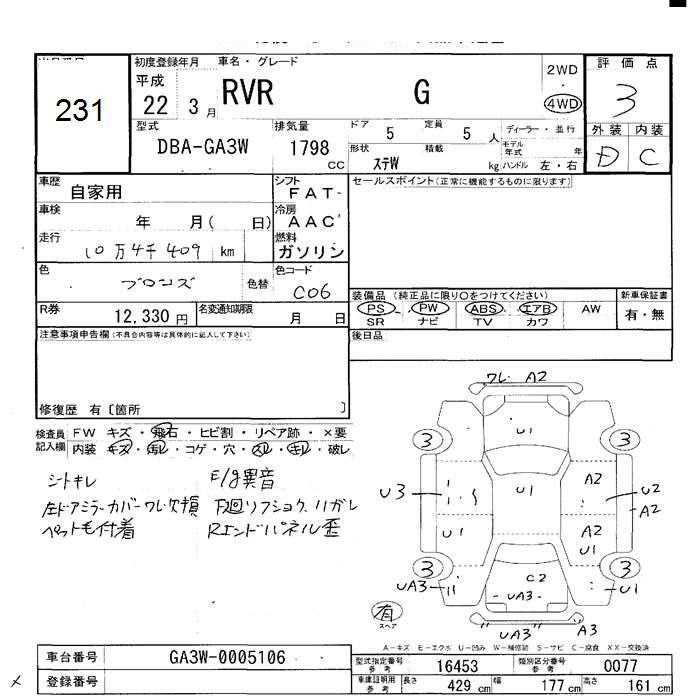 231
初度登録年月 車名・グレード
平成 22 3月 RVR G
2WD
4WD
評価点
3
外装 内装
D C
型式 DBA-GA3W
排気量 1798 CC
ドア 5 定員 5 人
形状 ステW 積載 kg
ディーラー・並行
モデル年式 年
ハンドル 左・右
車歴 自家用
シフト FAT-
車検 年 月( 日)
冷房 AAC
走行 10万4千409 km
燃料 ガソリン
色 ブロンズ 色替
色コード C06
R券 12,330 円
名変通知期限 月 日
セールスポイント(正常に機能するものに限ります)
装備品 (純正品に限り○をつけてください)
PS PW ABS エアB AW
SR ナビ TV カワ
新車保証書
有・無
後日品
注意事項申告欄(不具合内容等は具体的に記入して下さい)
修復歴 有〔箇所 〕
検査員記入欄
FW キズ・飛石・ヒビ割・リペア跡・×要
内装 キズ・汚レ・コゲ・穴・スレ・キレ・破レ
シトキレ
左ドアミラーカバーワレ欠損
ペット毛付着
E/g異音
下廻リフショク、ハガレ
Rエンドパネル歪
ワレ A2
3 U1 3
U3 U1 A2 U2 A2
U1 A2 U1
3 3
UA3 C2 U1
UA3
有
スペア
"UA3" A3
A-キズ E-エクボ U-凹み W-補修跡 S-サビ C-腐食 XX-交換済
車台番号 GA3W-0005106
登録番号
型式指定番号 参考 16453
類別区分番号 参考 0077
車庫証明用 参考 長さ 429 cm 幅 177 cm 高さ 161 cm